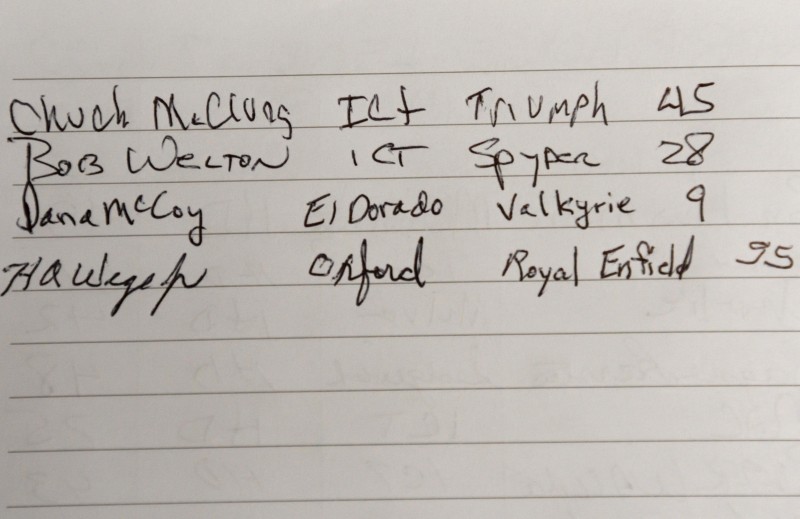 Chuck McClung ICT Triumph 45
BOB WELTON ICT Spyder 28
Dana McCoy El Dorado Valkyrie 9
Oxford Royal Enfield 95